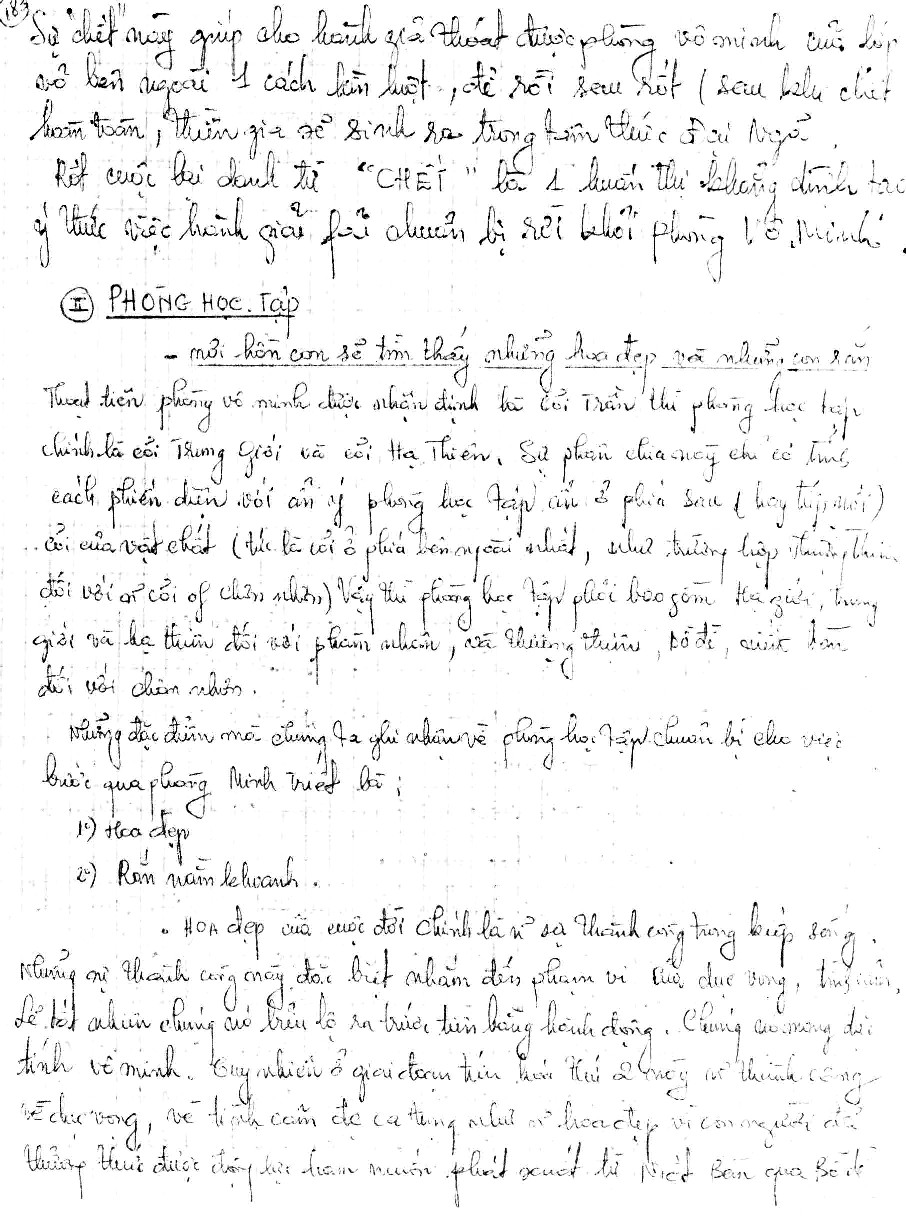 183
Sự "chết" này giúp cho hành giả thoát được phòng vô minh của lớp
vỏ bên ngoài 1 cách lần lượt, để rồi sau rốt (sau khi chết
hoàn toàn, thiền giả sẽ sinh ra trong tâm thức Đại Ngã.
Rốt cuộc lại danh từ "CHẾT" là 1 huấn thị khẳng định
ý thức việc hành giả fải chuẩn bị rời khỏi phòng Vô Minh.
II PHÒNG HỌC TẬP
- nơi hồn con sẽ tìm thấy những hoa đẹp và những con rắn
Thoạt tiên phòng vô minh được nhận định là cõi Trần thì phòng học tập
chính là cõi Trung Giới và cõi Hạ Thiên. Sự phân chia này chỉ có tính
cách phiến diện với ẩn ý phòng học tập ẩn ở phía sau (hay tiếp nối)
cõi của vật chất (tức là cõi ở phía bên ngoài nhất, như trường hợp thượng thiên
đối với cõi of chân nhân) Vậy thì phòng học tập phải bao gồm Hạ giới, trung
giới và hạ thiên đối với phàm nhân, và thượng thiên, bồ đề, niết bàn
đối với chân nhân.
Những đặc điểm mà chúng ta ghi nhận về phòng học tập chuẩn bị cho việc
bước qua phòng Minh triết là:
1°) Hoa đẹp
2°) Rắn nằm khoanh.
. HOA đẹp của cuộc đời chính là sự thành công trong kiếp sống.
Những sự thành công này đặc biệt nhắm đến phạm vi của dục vọng, tình cảm,
Lẽ tất nhiên chúng nó biểu lộ ra trước tiên bằng hành động. Chúng nó mang đặc
tính vô minh. Tuy nhiên ở giai đoạn tiến hóa thứ 2 này thành công
về dục vọng, về tình cảm đc ca tụng như hoa đẹp vì con người đã
thưởng thức được động lực ham muốn phát xuất từ Niết Bàn qua Bồ đề